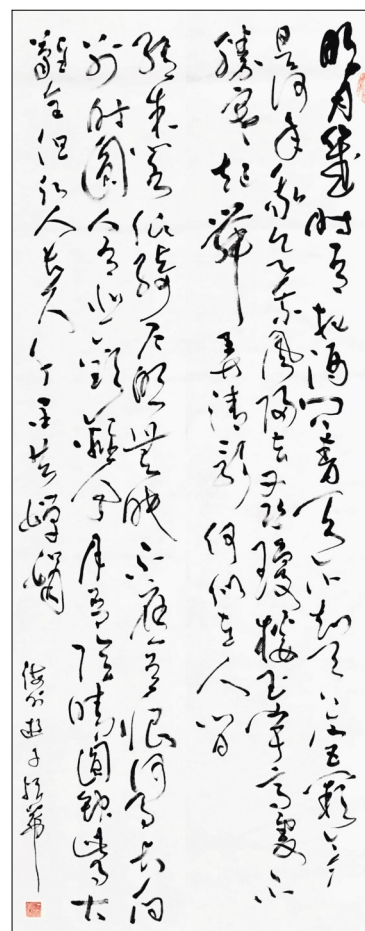 明月幾時有把酒問青天不知天上宮闕今夕
是何年我欲乘風歸去又恐瓊樓玉宇高處不
勝寒起舞弄清影何似在人間
轉朱閣低綺戶照無眠不應有恨何事長向
別時圓人有悲歡離合月有陰晴圓缺此事古
難全但願人長久千里共嬋娟
海外遊子